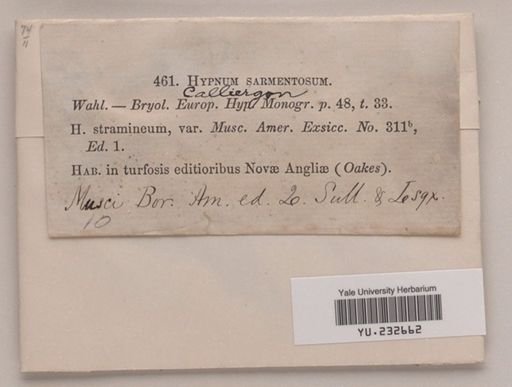 74
11
461. HYPNUM SARMENTOSUM.
Calliergon
Wahl. — Bryol. Europ. Hyp. Monogr. p. 48, t. 33.
H. stramineum, var. Musc. Amer. Exsicc. No. 311ᵇ,
Ed. 1.
HAB. in turfosis editioribus Novæ Angliæ (Oakes).
Musci Bor. Am. ed. 2. Sull. & Lesqx.
10
Yale University Herbarium
YU.232662